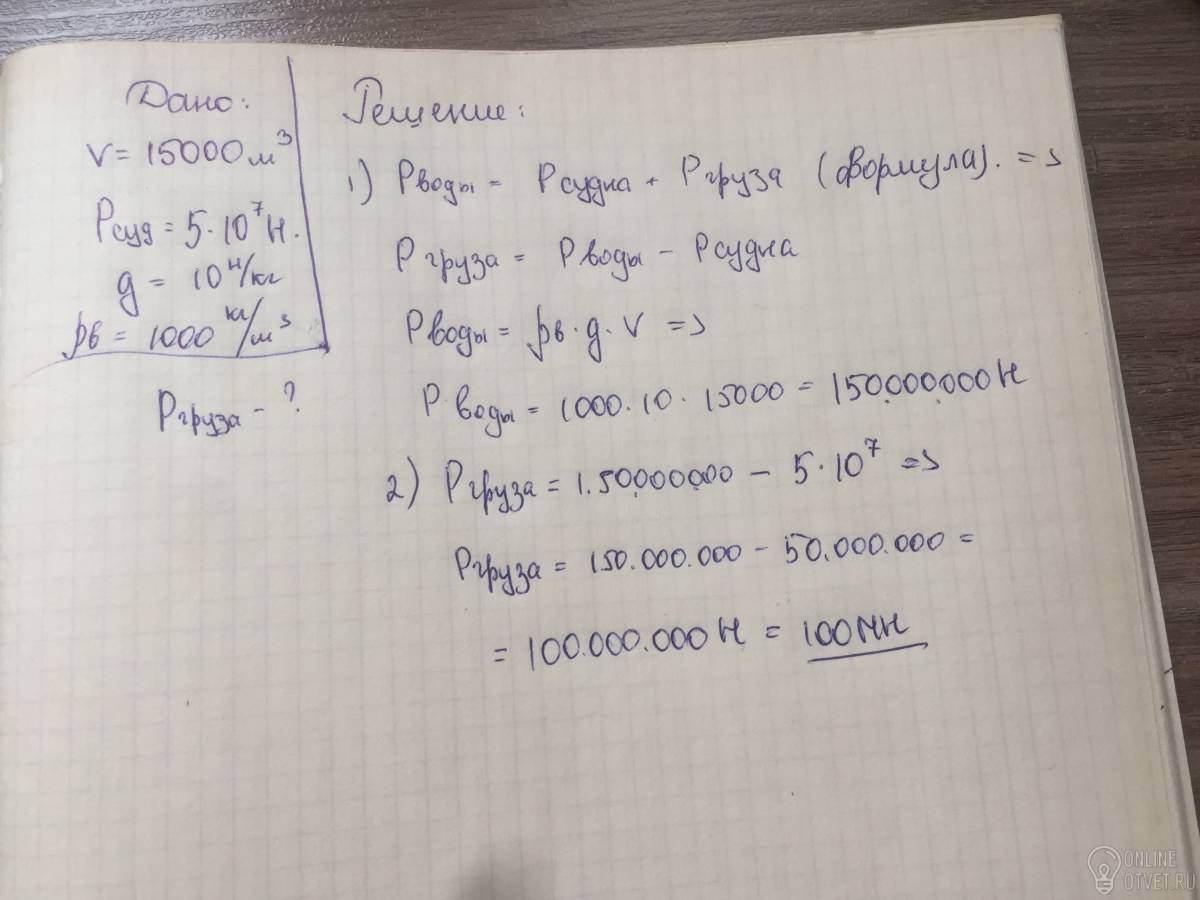 Дано:
V = 15000 м³
Pсуд = 5·10⁷ Н.
g = 10 Н/кг
ρв = 1000 кг/м³
Pгруза - ?
Решение:
1) Pводы = Pсудна + Pгруза (формула). =>
Pгруза = Pводы - Pсудна
Pводы = ρв·g·V =>
Pводы = 1000·10·15000 = 150.000.000 Н
2) Pгруза = 1.50.000.000 - 5·10⁷ =>
Pгруза = 150.000.000 - 50.000.000 =
= 100.000.000 Н = 100 МН
ONLINE
OTVET.RU